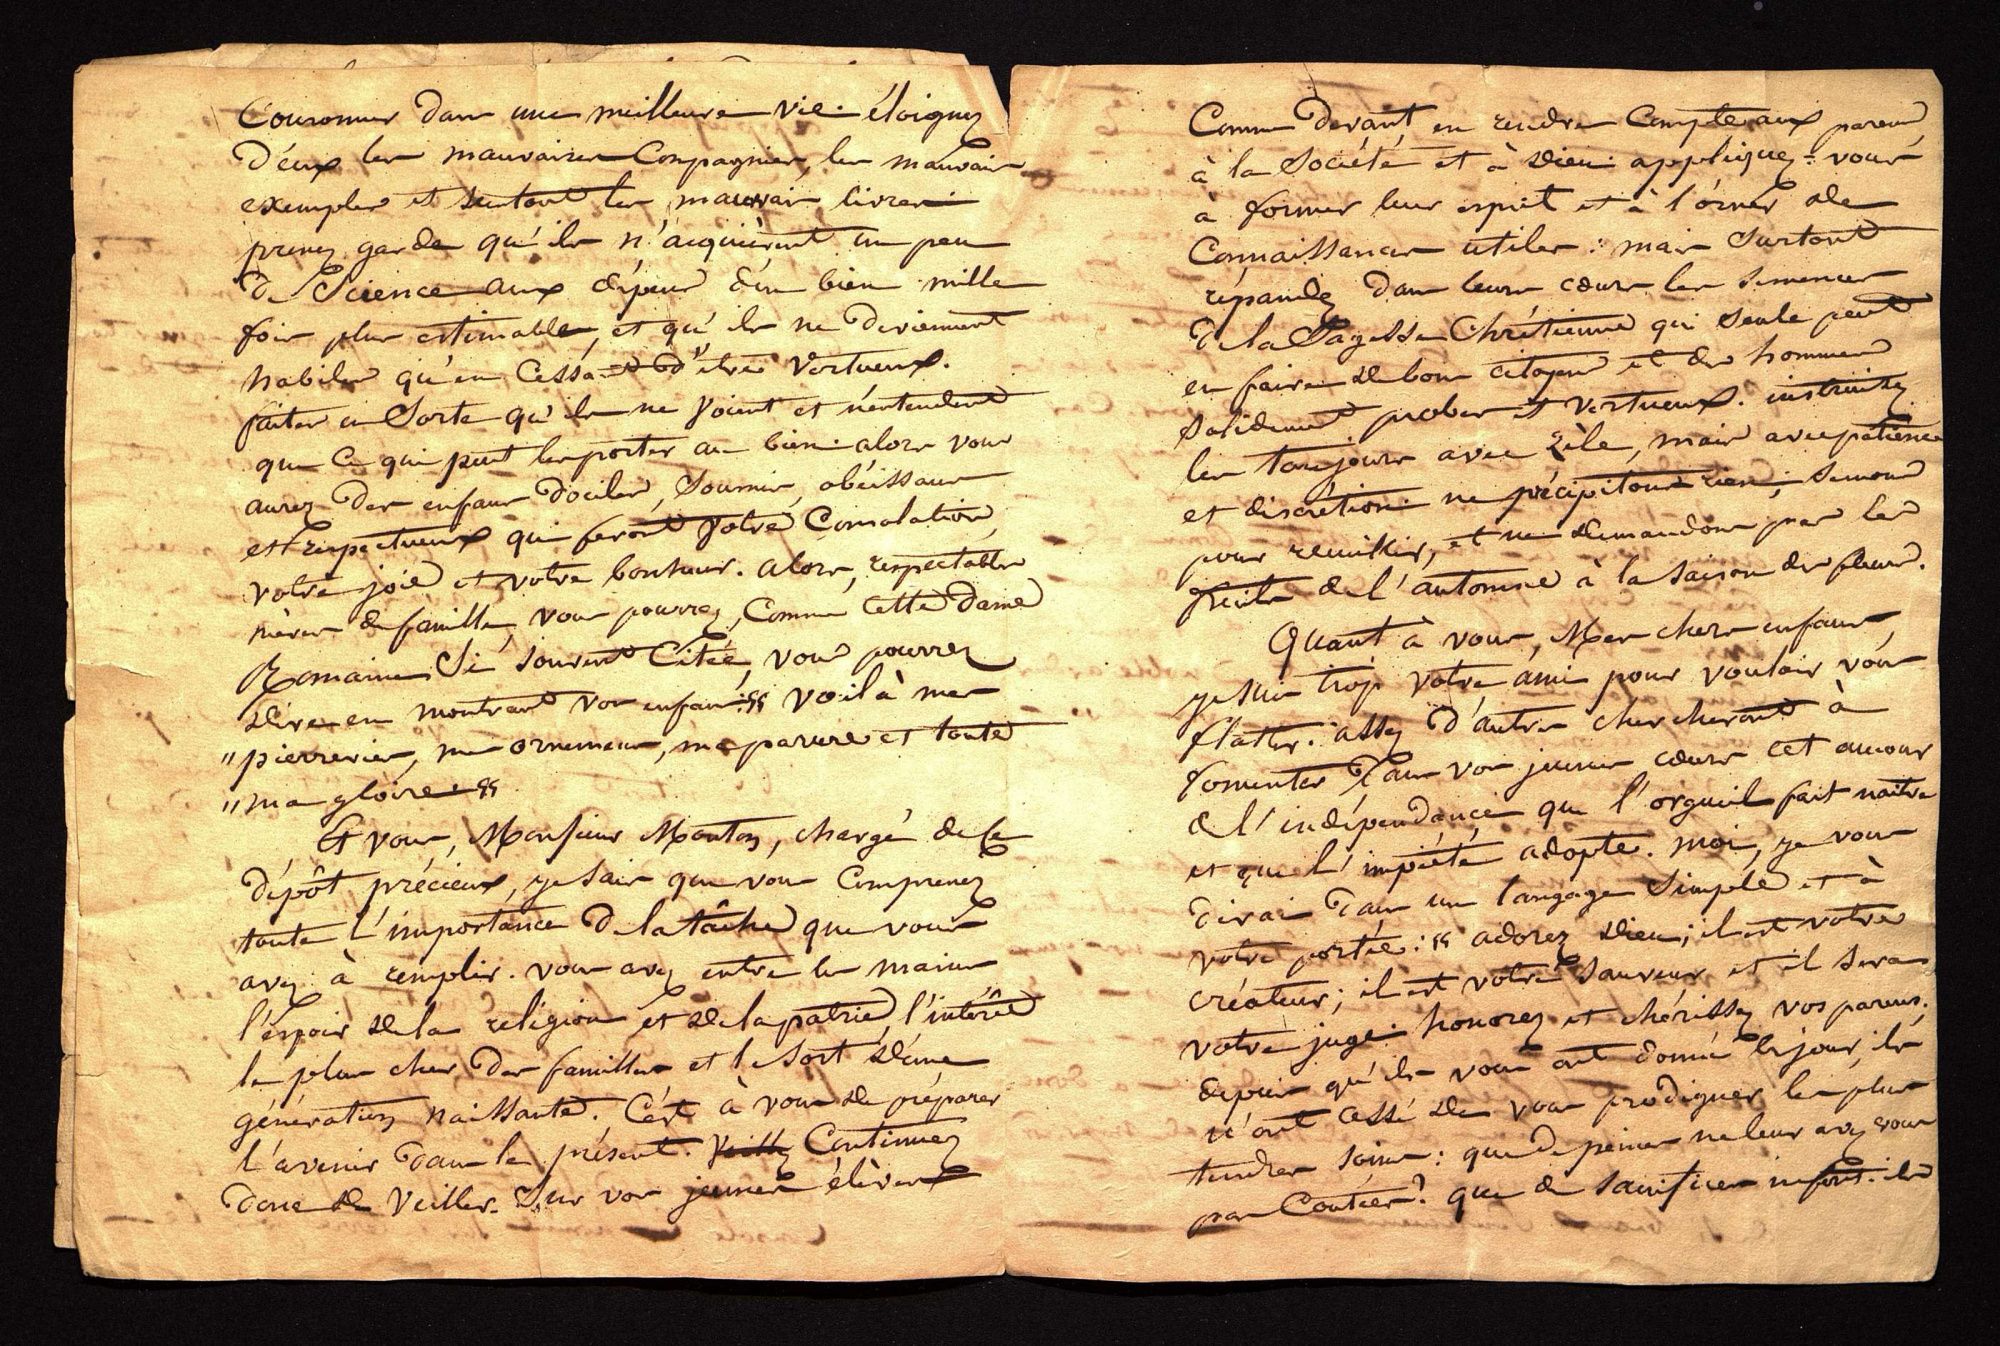 Couronner dans une meilleure vie. éloignez
d'eux les mauvaises Compagnies, les mauvais
exemples et surtout les mauvais livres.
prenez garde qu'ils n'acquièrent un peu
de Science aux dépens d'un bien mille
fois plus estimable, et qu'ils ne deviennent
habiles qu'en Cessant d'être Vertueux.
faites en Sorte qu'ils ne Voient et n'entendent
que Ce qui peut les porter au bien. alors vous
aurez des enfans dociles, Soumis, obéissans
et respectueux qui feront Votre Consolation,
votre joie et votre bonheur. alors, respectables
mères de famille, vous pourrez, Comme Cette Dame
Romaine Si souvent Citée, vous pourrez
dire en montrant vos enfans: " voilà mes
" pierreries, mes ornemens, ma parure et toute
" ma gloire. "
Et vous, Monsieur Mouton, chargé de Ce
dépôt précieux, je sais que vous Comprenez
toute l'importance de la tâche que vous
avez à remplir. vous avez entre les mains
l'espoir de la religion et de la patrie, l'intérêt
le plus cher des familles et le Sort d'une
génération naissante. C'est à vous de préparer
l'avenir dans le présent. Veillez Continuez
donc de Veiller Sur vos jeunes élèves
Comme devant en rendre Compte aux parens
à la Société et à Dieu. appliquez-vous
à former leur esprit et à l'orner de
Connaissances utiles: mais Surtout
répandez dans leurs cœurs les semences
de la Sagesse Chrétienne qui Seule peut
en faire de bons citoyens et des hommes
Solidement probes et vertueux. instruisez
les toujours avec zèle, mais avec patience
et discrétion. ne précipitons rien; Semons
pour recuillir, et ne demandons pas les
fruits de l'automne à la saison des fleurs.
Quant à vous, Mes chers enfans,
je suis trop votre ami pour vouloir vous
flatter. assez d'autres chercheront à
fomenter dans vos jeunes cœurs cet amour
de l'indépendance que l'orgueil fait naître
et que l'impiété adopte. moi, je vous
dirai dans un langage Simple et à
votre portée: " adorez Dieu; il est votre
créateur; il est votre Sauveur et il Sera
votre juge. honorez et chérissez vos parens;
depuis qu'ils vous ont donné le jour, ils
n'ont cessé de vous prodiguer les plus
tendres soins: que de peines ne leur avez vous
pas Coutées? que de sacrifices n'ont-ils